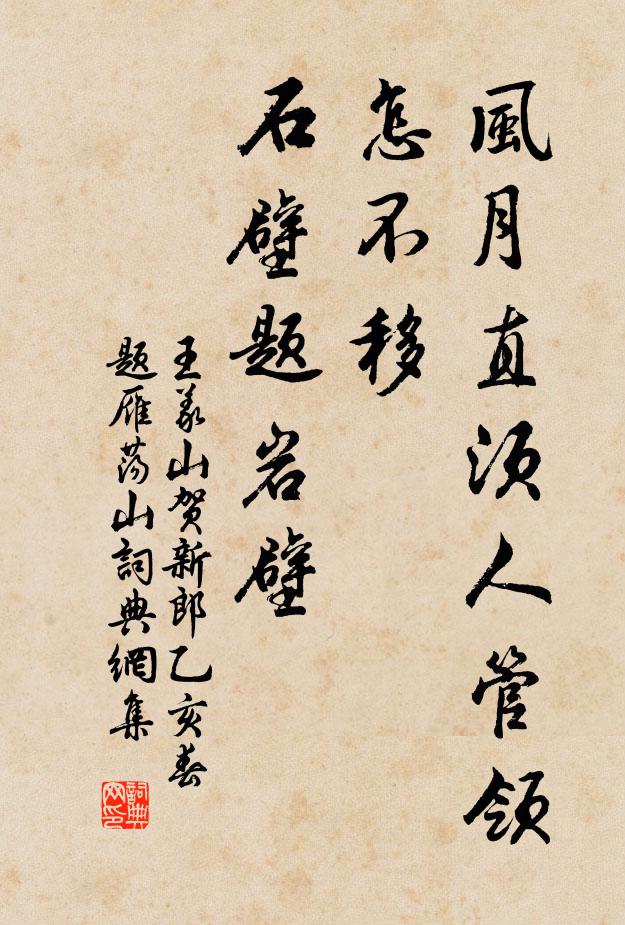 風月直須人管領
怎不移
石壁題岩壁
王義山賀新郎乙亥春
題雁蕩山詞典網集
詞典
网印